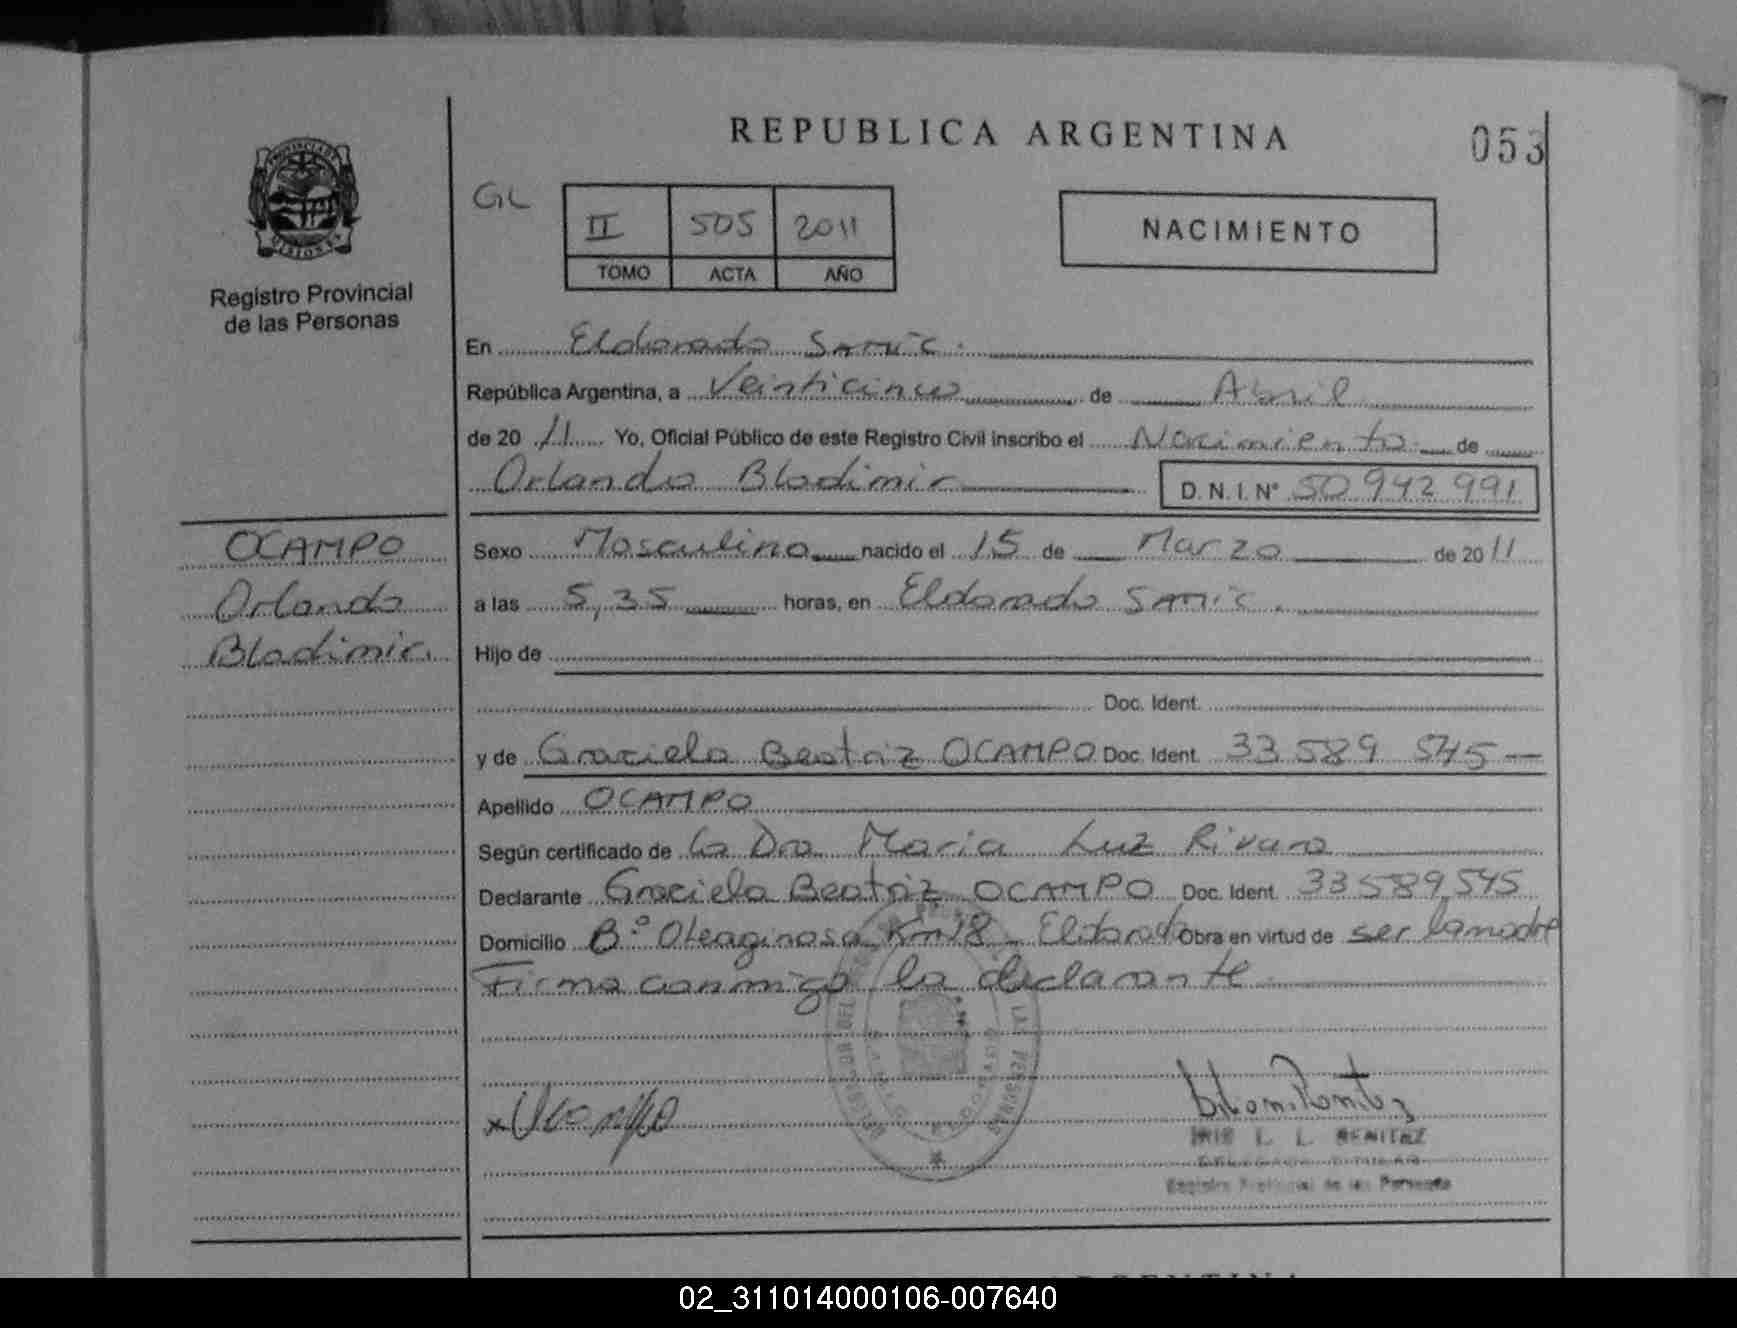 REPUBLICA ARGENTINA
053
PROVINCIA DE MISIONES
Registro Provincial
de las Personas
GL
II 505 2011
TOMO ACTA AÑO
NACIMIENTO
En Eldorado SAMIC.
República Argentina, a Veinticinco de Abril
de 20 11 Yo, Oficial Público de este Registro Civil inscribo el Nacimiento de
Orlando Bladimir D.N.I. N° 50 942 991
OCAMPO
Orlando
Bladimir.
Sexo Masculino nacido el 15 de Marzo de 20 11
a las 5,35 horas, en Eldorado SAMIC.
Hijo de
Doc. Ident.
y de Graciela Beatriz OCAMPO Doc. Ident. 33 589 545
Apellido OCAMPO
Según certificado de la Dra Maria Luz Rivara
Declarante Graciela Beatriz OCAMPO Doc. Ident. 33 589 545
Domicilio B° Oleaginosa Km 18 - Eldorado Obra en virtud de ser la madre
Firma conmigo la declarante
x Ocampo
LAS PERSONAS
IRIS L. L. BENITEZ
DELEGADA TITULAR
Registro Provincial de las Personas
ARGENTINA
02_311014000106-007640